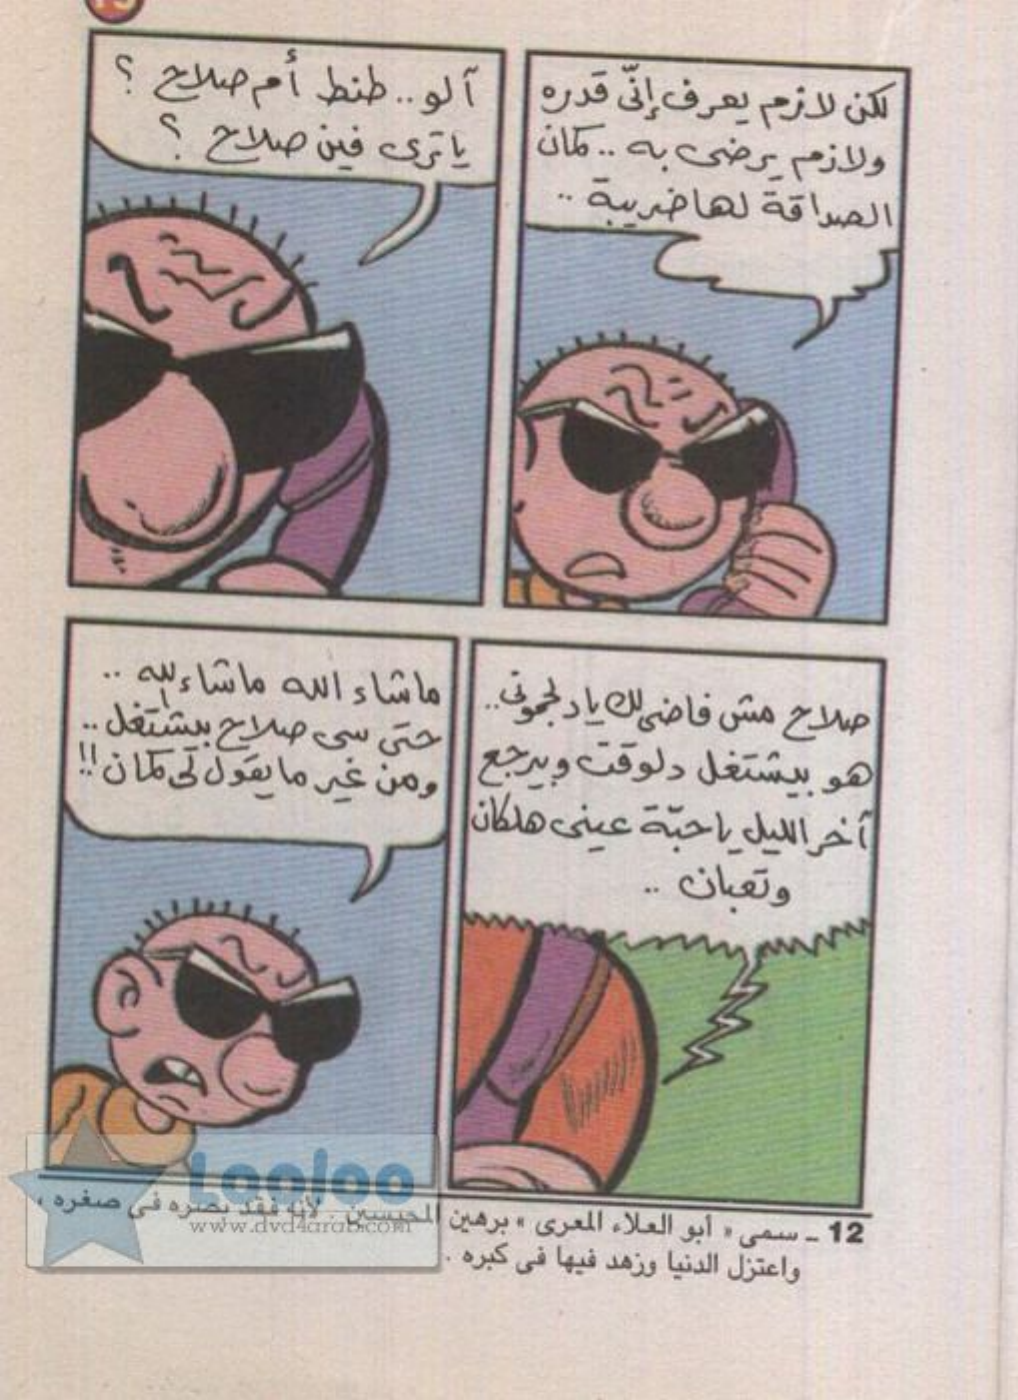 لكن لازم يعرف إنّي قدره
ولازم يرضى به .. كمان
الصداقة لها ضريبة ..
آلو .. طنط أم صلاح ؟
يا ترى فين صلاح ؟
صلاح مش فاضي لك يا دلجموني ..
هو بيشتغل دلوقت وبيرجع
آخر الليل يا حبّة عيني هلكان
وتعبان ..
ما شاء الله ما شاء لله ..
حتى سي صلاح بيشتغل ..
ومن غير ما يقول لي كمان !!
12 ـ سمى « أبو العلاء المعرى » برهين المحبسين . لأنه فقد بصره فى صغره ،
واعتزل الدنيا وزهد فيها فى كبره .
Looloo
www.dvd4arab.com